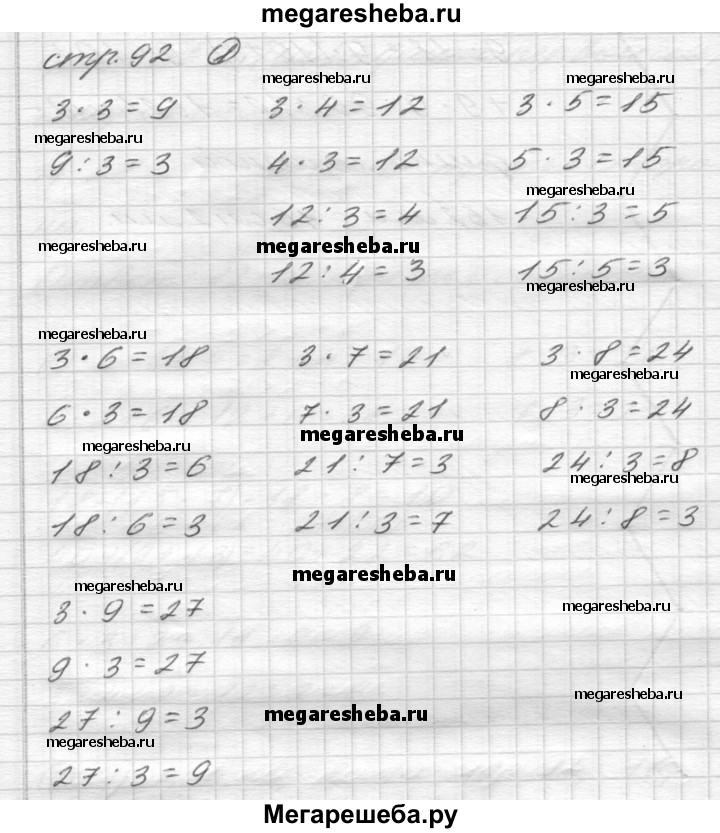 megaresheba.ru
стр. 92 1
megaresheba.ru megaresheba.ru
3 · 3 = 9 3 · 4 = 12 3 · 5 = 15
megaresheba.ru
9 : 3 = 3 4 · 3 = 12 5 · 3 = 15
megaresheba.ru
12 : 3 = 4 15 : 3 = 5
megaresheba.ru megaresheba.ru
12 : 4 = 3 15 : 5 = 3
megaresheba.ru
megaresheba.ru
3 · 6 = 18 3 · 7 = 21 3 · 8 = 24
megaresheba.ru
6 · 3 = 18 7 · 3 = 21 8 · 3 = 24
megaresheba.ru
megaresheba.ru
18 : 3 = 6 21 : 7 = 3 24 : 3 = 8
megaresheba.ru
18 : 6 = 3 21 : 3 = 7 24 : 8 = 3
megaresheba.ru
megaresheba.ru
3 · 9 = 27
megaresheba.ru
9 · 3 = 27
megaresheba.ru
27 : 9 = 3 megaresheba.ru
megaresheba.ru
27 : 3 = 9
Мегарешеба.ру